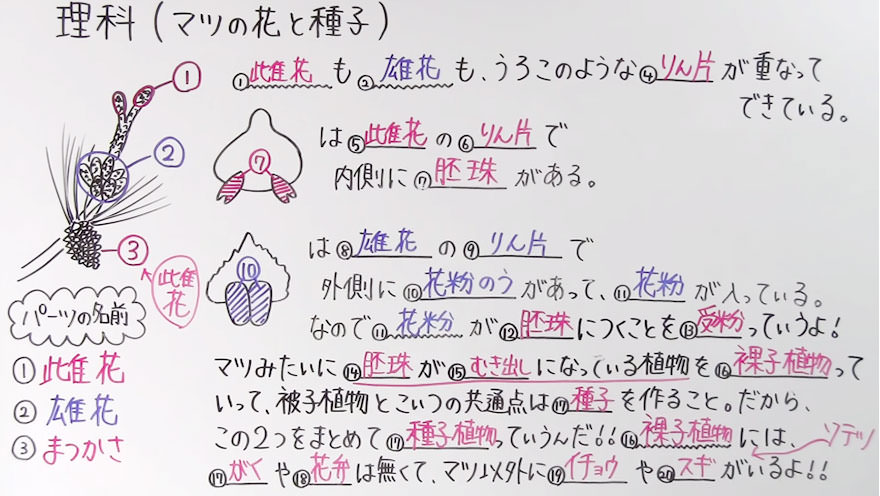 理科(マツの花と種子)
①雌花も②雄花も、うろこのような④りん片が重なって
できている。
①
②
③
雌花
パーツの名前
①雌花
②雄花
③まつかさ
⑦
は⑤雌花の⑥りん片で
内側に⑦胚珠がある。
⑩
は⑧雄花の⑨りん片で
外側に⑩花粉のうがあって、⑪花粉が入っている。
なので⑪花粉が⑫胚珠につくことを⑬受粉っていうよ!
マツみたいに⑭胚珠が⑮むき出しになっている植物を⑯裸子植物って
いって、被子植物とこいつの共通点は⑰種子を作ること。だから、
この2つをまとめて⑰種子植物っていうんだ!!⑯裸子植物には、
ソテツ
⑰がくや⑱花弁は無くて、マツ以外に⑲イチョウや⑳スギがいるよ!!